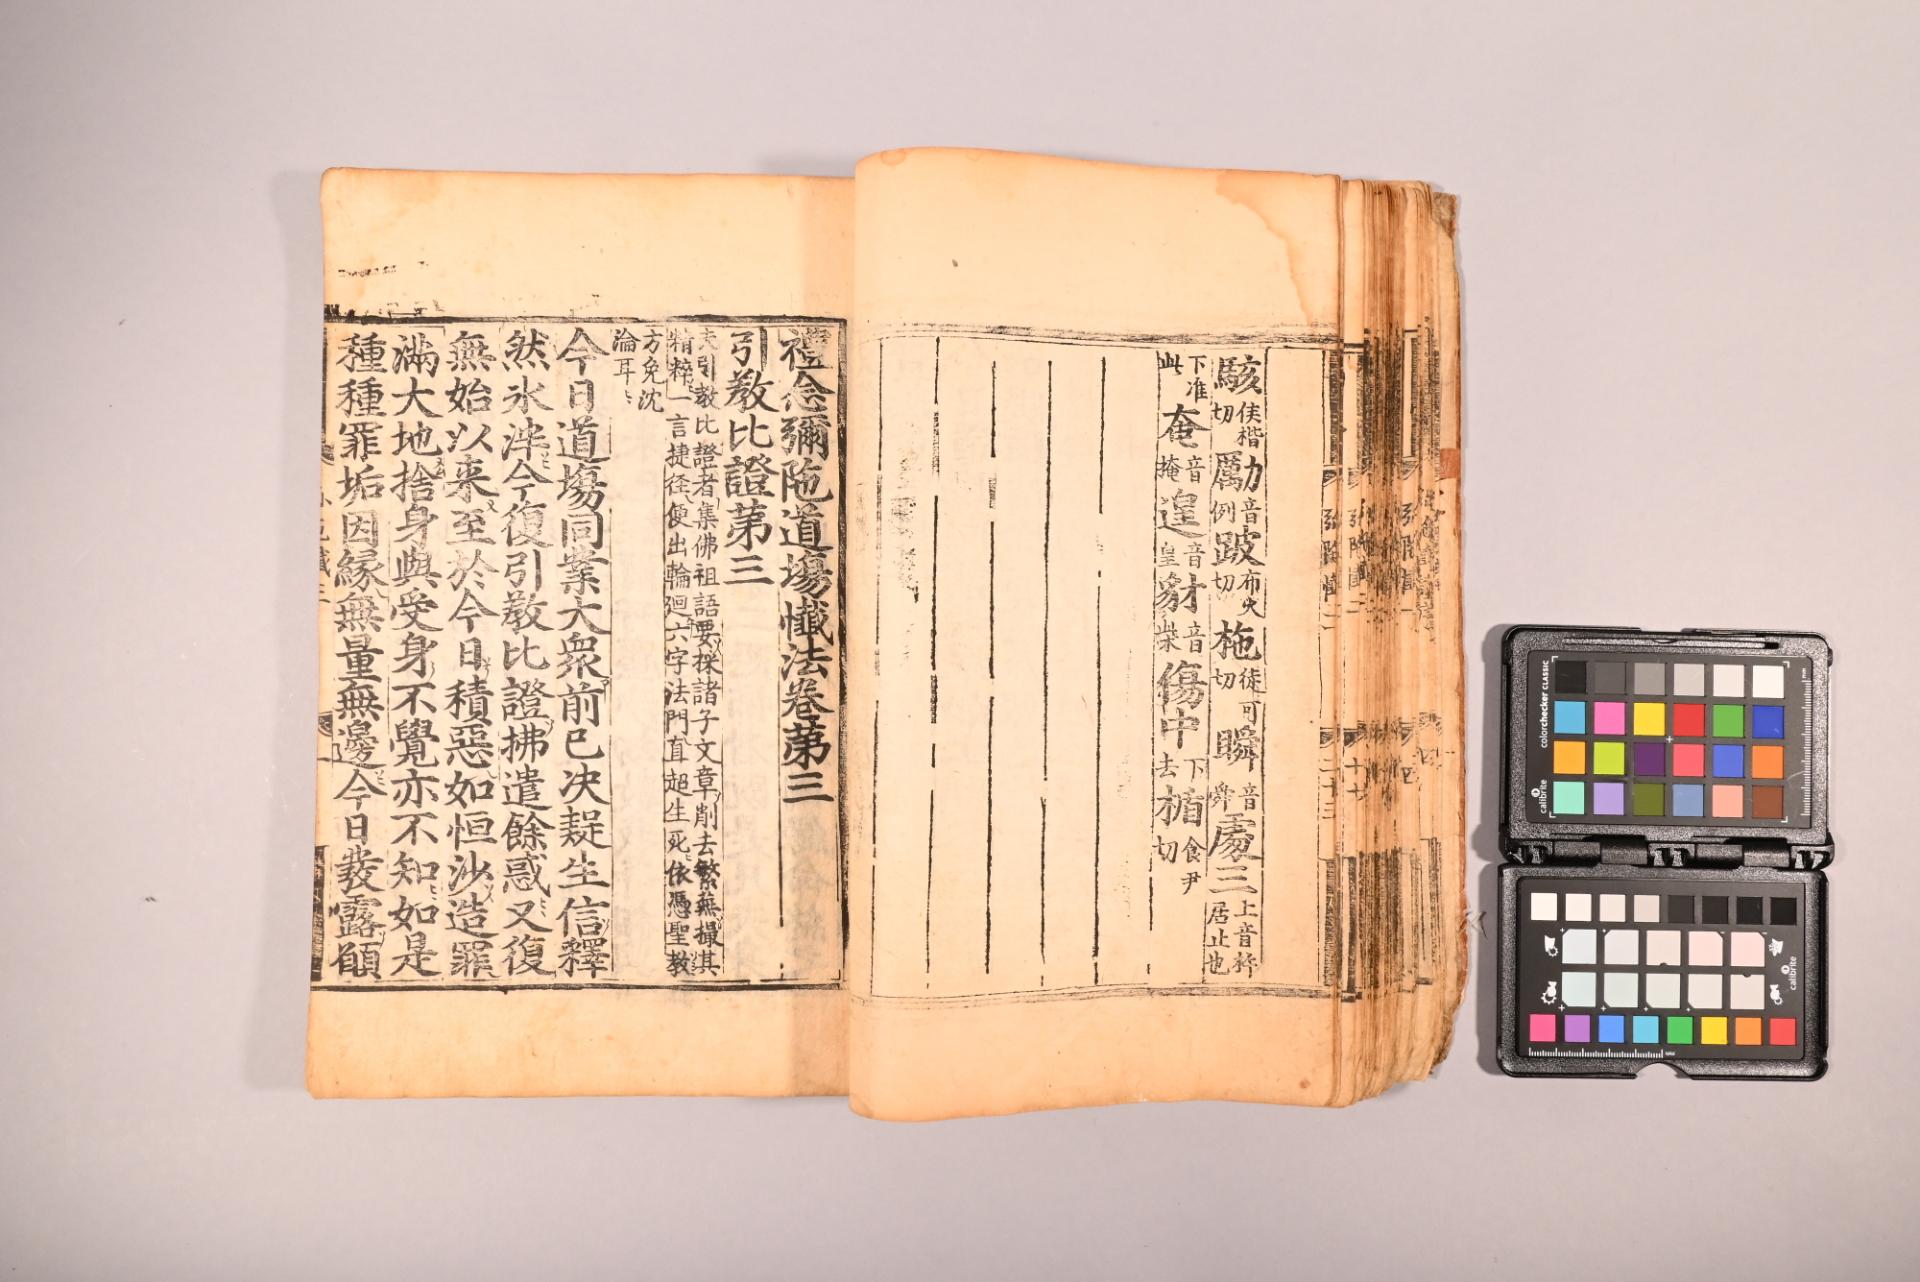 駭侯楷切勵力音例跛布火切拖徒可切瞬音舜處三上音杵居止也
下准此奄音掩遑音皇豺音柴傷中下去楯食尹切
禮念彌陁道塲懺法卷第三
引教比證第三
夫引教比證者集佛祖語要採諸子文章削去繁蕪撮其
精粹一言捷徑便出輪廻六字法門直超生死依憑聖教
方免沈
淪耳
今日道塲同業大衆前已决疑生信釋
然氷泮今復引教比證拂遣餘惑又復
無始以来至於今日積惡如恒沙造罪
滿大地捨身與受身不覺亦不知如是
種種罪垢因縁無量無邊今日發露願
colorchecker CLASSIC
calibrite
calibrite